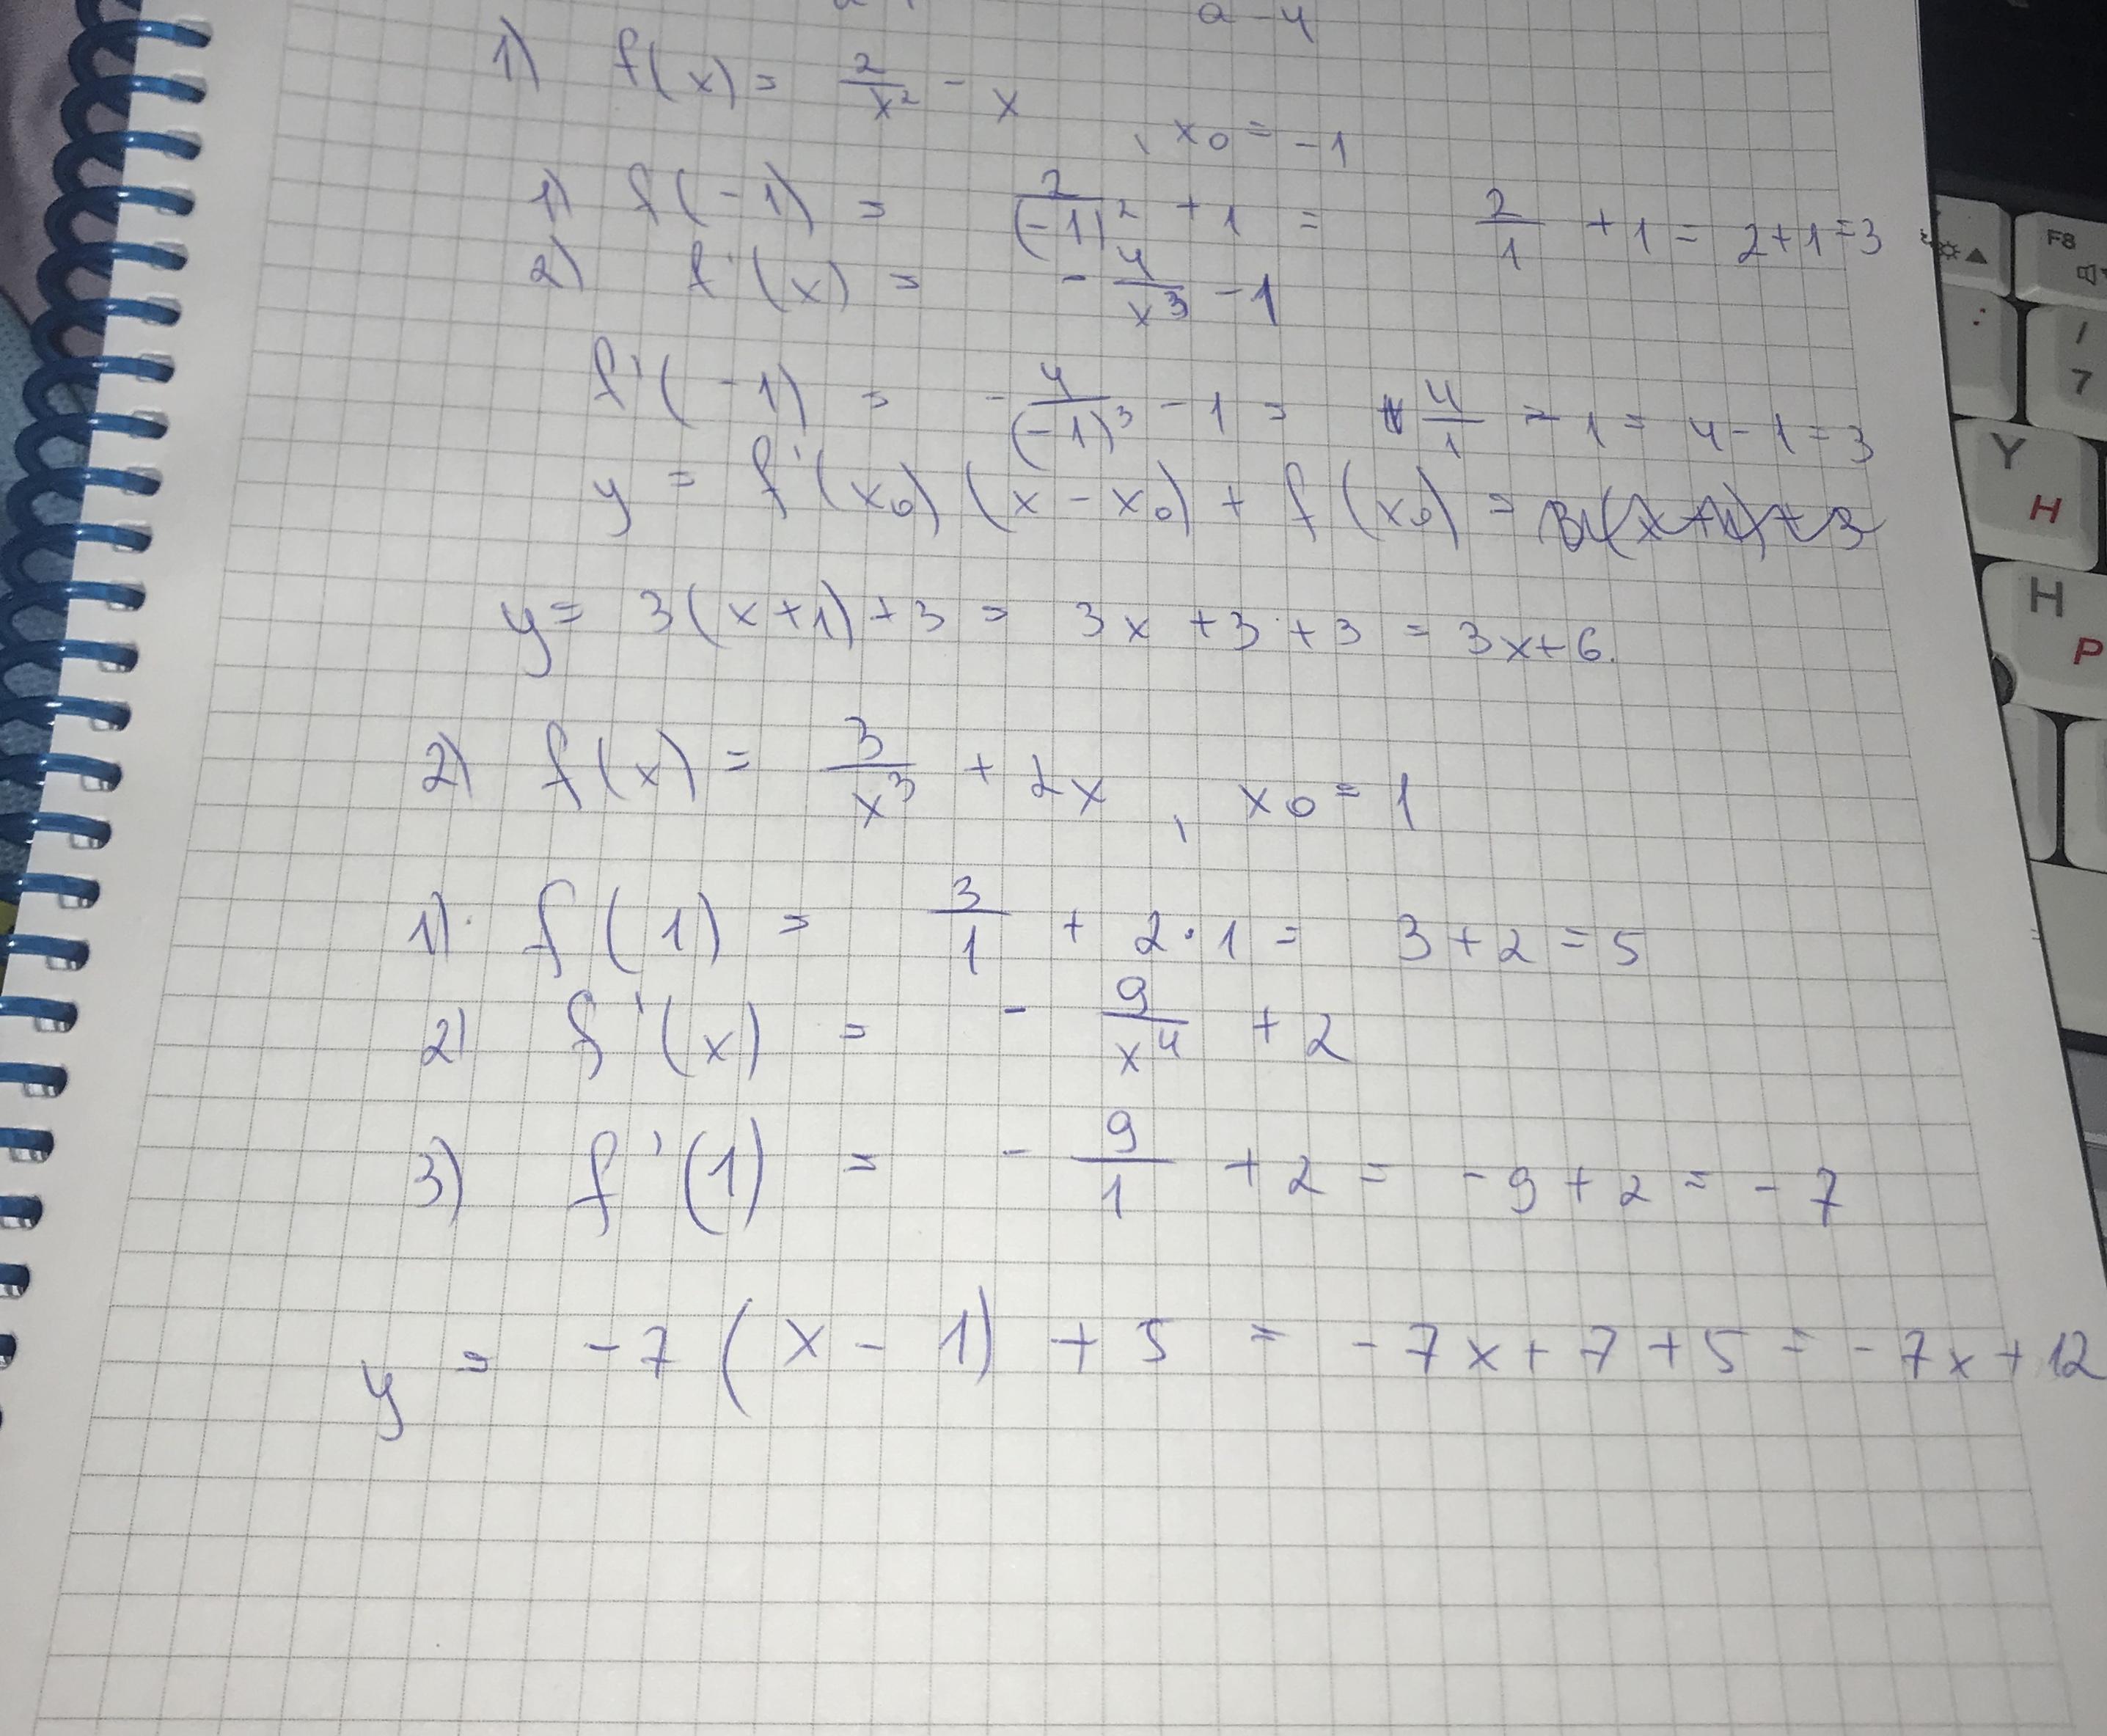 a - 4
1) f(x) = 2/x² - x , x₀ = -1
1) f(-1) = 2/(-1)² + 1 = 2/1 + 1 = 2+1=3
2) f'(x) = - 4/x³ - 1
f'(-1) = - 4/(-1)³ - 1 = 4/1 - 1 = 4-1=3
y = f'(x₀) (x - x₀) + f(x₀) = 3(x+1)+3
y = 3(x+1)+3 = 3x +3 +3 = 3x+6.
2) f(x) = 3/x³ + 2x , x₀ = 1
1). f(1) = 3/1 + 2·1 = 3+2=5
2) f'(x) = - 9/x⁴ + 2
3) f'(1) = - 9/1 + 2 = -9+2 = -7
y = -7(x - 1) + 5 = -7x+7+5 = -7x+12
F8
/
7
:
Y
H
H
P